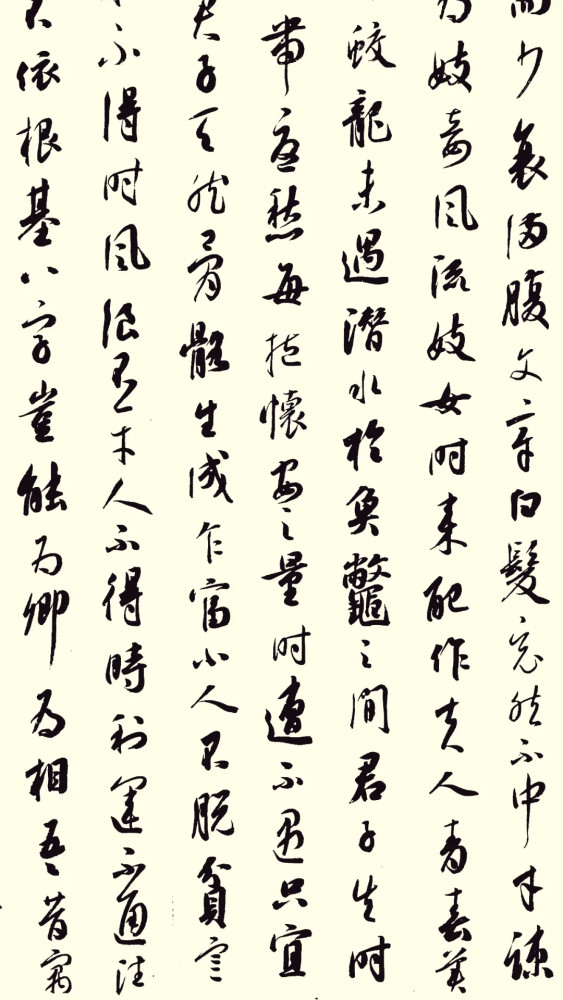 而少衰满腹文章白髮竟然不中才疎
为妓妾風流妓女时来配作夫人青春美
蛟龍未遇潜水於魚鼈之间君子失时
帶憂愁每抱懷安之量时遭不遇只宜
君子天然骨骼生成乍富小人不脱貧寒
不得时風浪不平人不得時利運不通注
不依根基八字豈能为卿为相吾昔寓